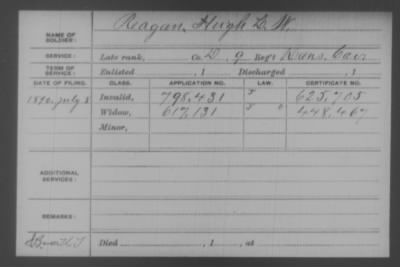 NAME OF SOLDIER: Reagan, Hugh B. W.
SERVICE: Late rank, Co. D, 9 Reg't Kans. Cav.
TERM OF SERVICE: Enlisted , 1 Discharged , 1
DATE OF FILING. CLASS. APPLICATION NO. LAW. CERTIFICATE NO.
1890, July 8 Invalid, 798,431 625,705
Widow, 617,131 448,467
Minor,
ADDITIONAL SERVICES:
REMARKS:
Died , 1 , at